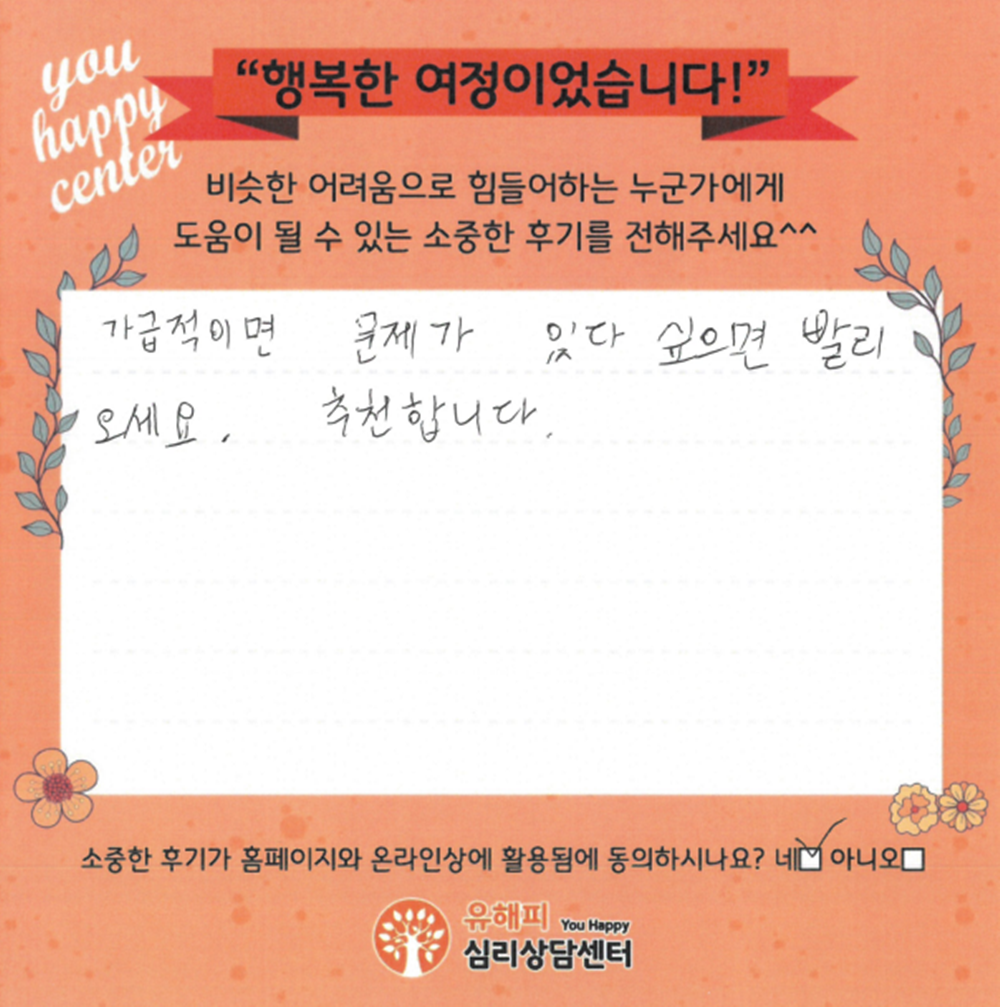 you
happy
center
“행복한 여정이었습니다!”
비슷한 어려움으로 힘들어하는 누군가에게
도움이 될 수 있는 소중한 후기를 전해주세요^^
가급적이면 문제가 있다 싶으면 빨리
오세요. 추천합니다.
소중한 후기가 홈페이지와 온라인상에 활용됨에 동의하시나요? 네☑ 아니오□
유해피 You Happy
심리상담센터